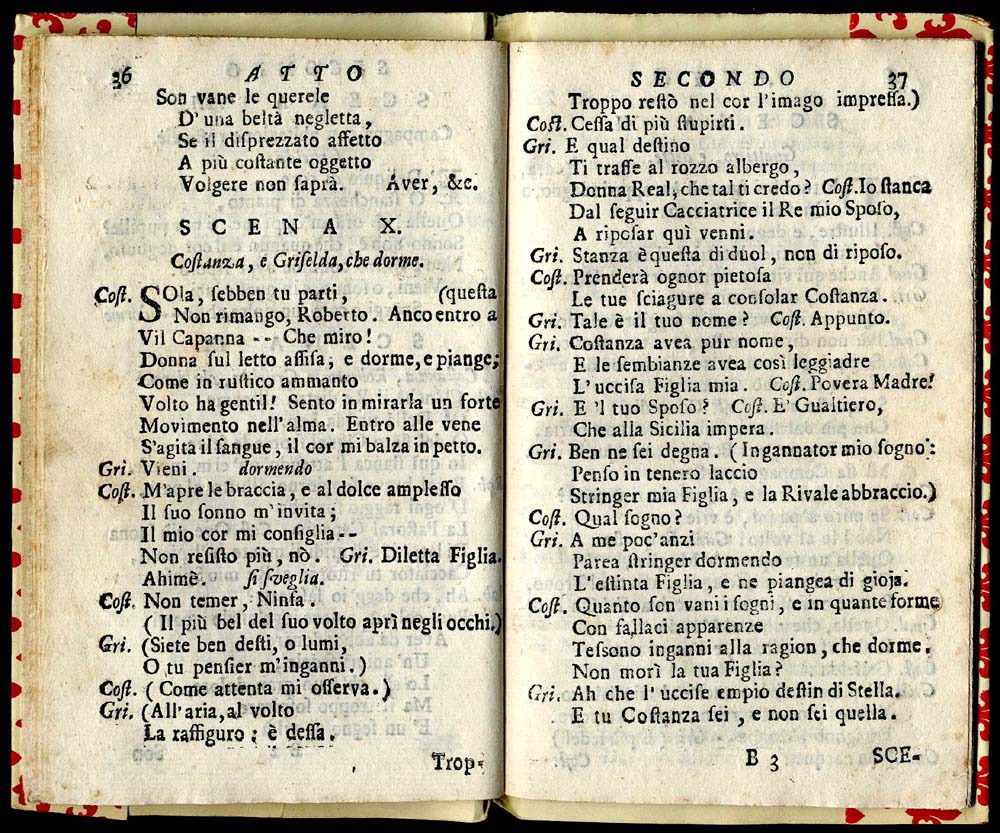 36 ATTO
Son vane le querele
D' una beltà negletta,
Se il disprezzato affetto
A più costante oggetto
Volgere non saprà. Aver, &c.
SCENA X.
Costanza, e Griselda, che dorme.
Cost. SOla, sebben tu parti, (questa
Non rimango, Roberto. Anco entro a
Vil Capanna -- Che miro!
Donna sul letto assisa, e dorme, e piange;
Come in rustico ammanto
Volto ha gentil! Sento in mirarla un forte
Movimento nell'alma. Entro alle vene
S'agita il sangue, il cor mi balza in petto.
Gri. Vieni. dormendo
Cost. M'apre le braccia, e al dolce amplesso
Il suo sonno m'invita;
Il mio cor mi consiglia--
Non resisto più, nò. Gri. Diletta Figlia.
Ahimè. si sveglia.
Cost. Non temer, Ninfa.
( Il più bel del suo volto aprì negli occhi.)
Gri. (Siete ben desti, o lumi,
O tu pensier m'inganni.)
Cost. ( Come attenta mi osserva.)
Gri. (All'aria, al volto
La raffiguro: è dessa.
Trop-
SECONDO 37
Troppo restò nel cor l'imago impressa.)
Cost. Cessa di più stupirti.
Gri. E qual destino
Ti trasse al rozzo albergo,
Donna Real, che tal ti credo? Cost. Io stanca
Dal seguir Cacciatrice il Re mio Sposo,
A riposar quì venni.
Gri. Stanza è questa di duol, non di riposo.
Cost. Prenderà ognor pietosa
Le tue sciagure a consolar Costanza.
Gri. Tale è il tuo nome? Cost. Appunto.
Gri. Costanza avea pur nome,
E le sembianze avea così leggiadre
L'uccisa Figlia mia. Cost. Povera Madre!
Gri. E 'l tuo Sposo? Cost. E' Gualtiero,
Che alla Sicilia impera.
Gri. Ben ne sei degna. (Ingannator mio sogno:
Penso in tenero laccio
Stringer mia Figlia, e la Rivale abbraccio.)
Cost. Qual sogno?
Gri. A me poc'anzi
Parea stringer dormendo
L'estinta Figlia, e ne piangea di gioja.
Cost. Quanto son vani i sogni, e in quante forme
Con fallaci apparenze
Tessono inganni alla ragion, che dorme.
Non morì la tua Figlia?
Gri. Ah che l'uccise empio destin di Stella.
E tu Costanza sei, e non sei quella.
B 3 SCE-